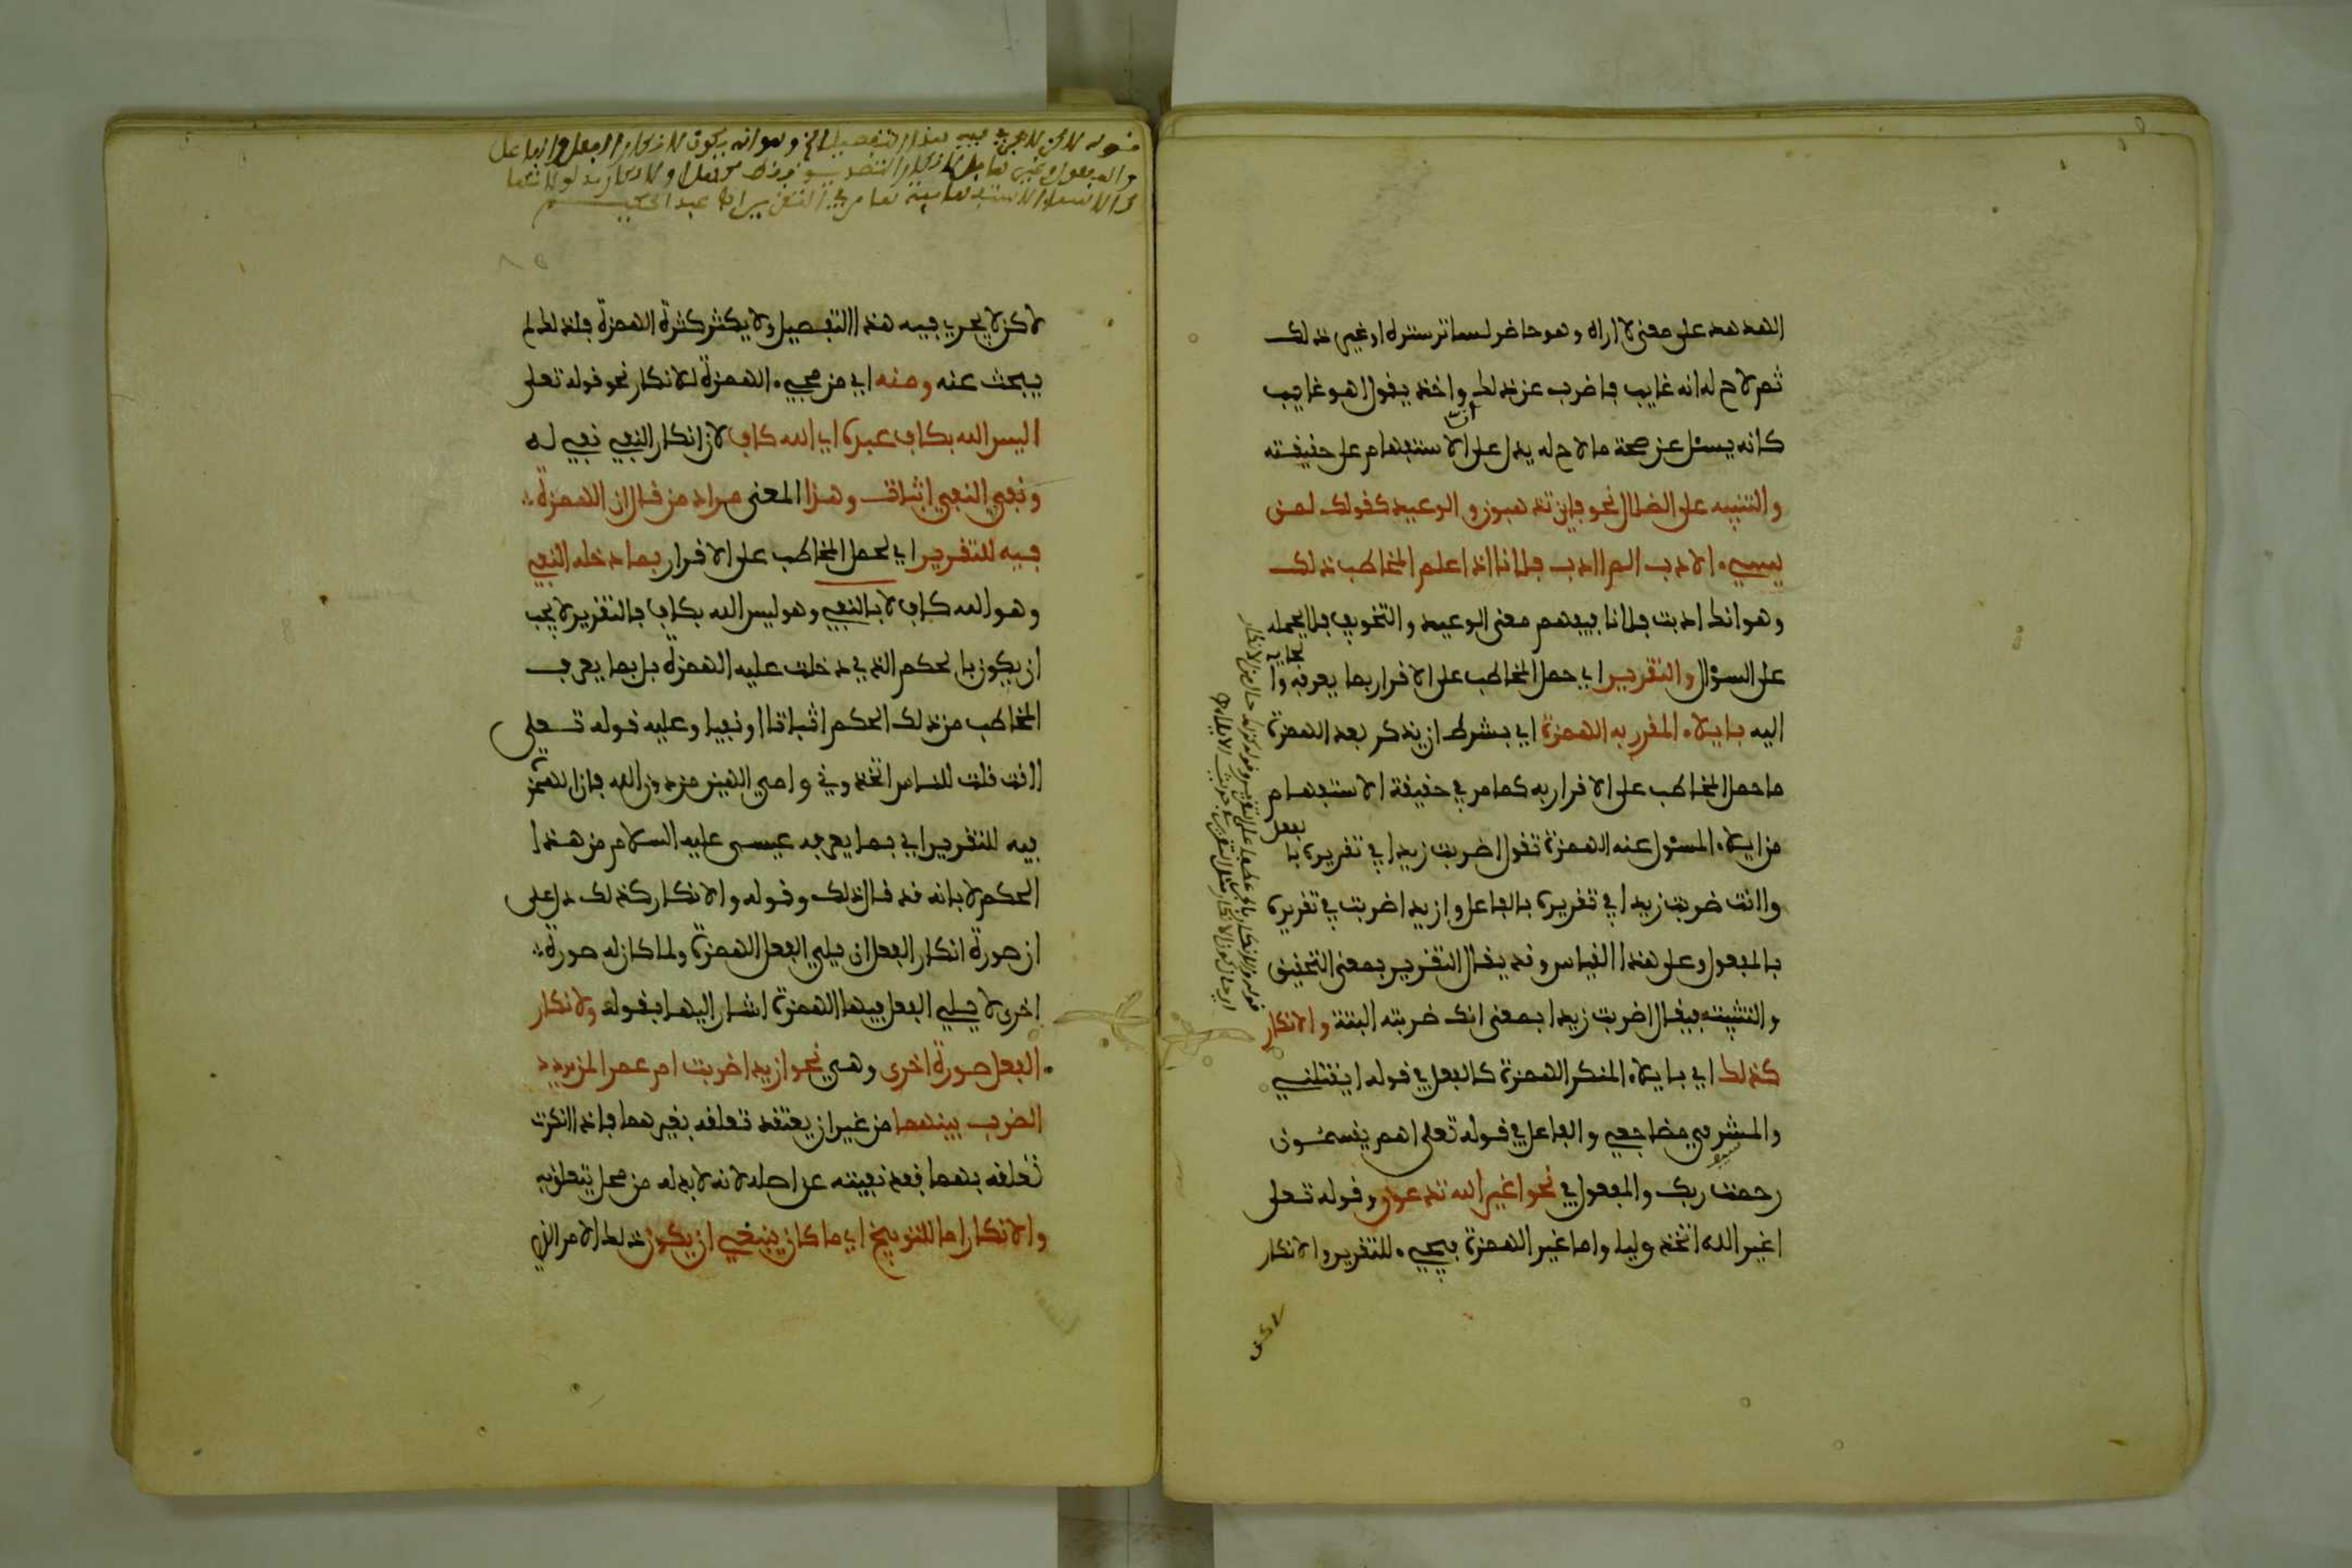 الهدهد على معنى لا اراه وهو حاضر لساتر ستره او غير ذلك
ثم لاح له انه غايب فاضرب عن ذلك واخذ يقول اهو غايب
كانه يسئل عن صحة ما لاح له يدل على ان الاستفهام على حقيقته
والتنبيه على الضلال نحو فاين تذهبون والوعيد كقولك لمن
يسيء الادب الم اادب فلانا اذا علم المخاطب ذلك
وهو انك ادبت فلانا فيفهم معنى الوعيد والتخويف فلا يحمله
على السؤال والتقرير اي حمل المخاطب على الاقرار بما يعرفه والجايه
اليه بايلاء المقرر به الهمزة اي بشرط ان يذكر بعد الهمزة
ما حمل المخاطب على الاقرار به كما مر في حقيقة الاستفهام
من ايلاء المسئول عنه الهمزة تقول اضربت زيدا في تقريره بالفعل
واانت ضربت زيدا في تقريره بالفاعل وازيدا ضربت في تقريره
بالمفعول وعلى هذا القياس وقد يقال التقرير بمعنى التحقيق
والتثبيت فيقال اضربت زيدا بمعنى انك ضربته البتة والانكار
كذلك اي بايلاء المنكر الهمزة كالفعل في قوله ايقتلني
والمشرفي مضاجعي والفاعل في قوله تعلى اهم يقسمون
رحمت ربك والمفعول في نحو اغير الله تدعون وقوله تعلى
اغير الله اتخذ وليا واما غير الهمزة فيجيء للتقرير والانكار
لاكن
لاكن لا يجري فيه هذا التفصيل ولا يكثر كثرة الهمزة فلذلك لم
يبحث عنه ومنه اي من مجيء الهمزة للانكار نحو قوله تعلى
اليس الله بكاف عبده اي الله كاف لان انكار النفي نفي له
ونفي النفي اثبات وهذا المعنى مراد من قال ان الهمزة
فيه للتقرير اي لحمل المخاطب على الاقرار بما دخله النفي
وهو الله كاف لا بالنفي وهو ليس الله بكاف فالتقرير لا يجب
ان يكون بالحكم الذي دخلت عليه الهمزة بل بما يعرف
المخاطب من ذلك الحكم اثباتا او نفيا وعليه قوله تعلى
اانت قلت للناس اتخذوني وامي الهين من دون الله فان الهمزة
فيه للتقرير اي بما يعرفه عيسى عليه السلام من هذا
الحكم لا بانه قد قال ذلك وقوله والانكار كذلك دل على
ان صورة انكار الفعل ان يلي الفعل الهمزة ولما كان له صورة
اخرى لا يلي الفعل فيها الهمزة اشار اليها بقوله ولانكار
الفعل صورة اخرى وهي نحو ازيدا ضربت ام عمرا لمن يردد
الضرب بينهما من غير ان يعتقد تعلقه بغيرهما فاذا انكرت
تعلقه بهما فقد نفيته عن اصله لانه لا بد له من محل يتعلق به
والانكار اما للتوبيخ اي ما كان ينبغي ان يكون ذلك الامر الذي